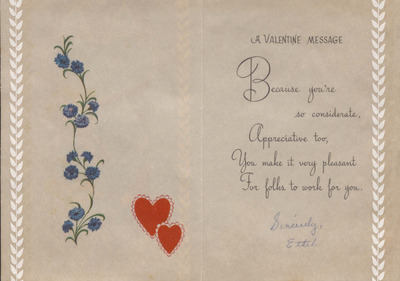 A VALENTINE MESSAGE
Because you're
so considerate,
Appreciative too,
You make it very pleasant
For folks to work for you.
Sincerely,
Ethel